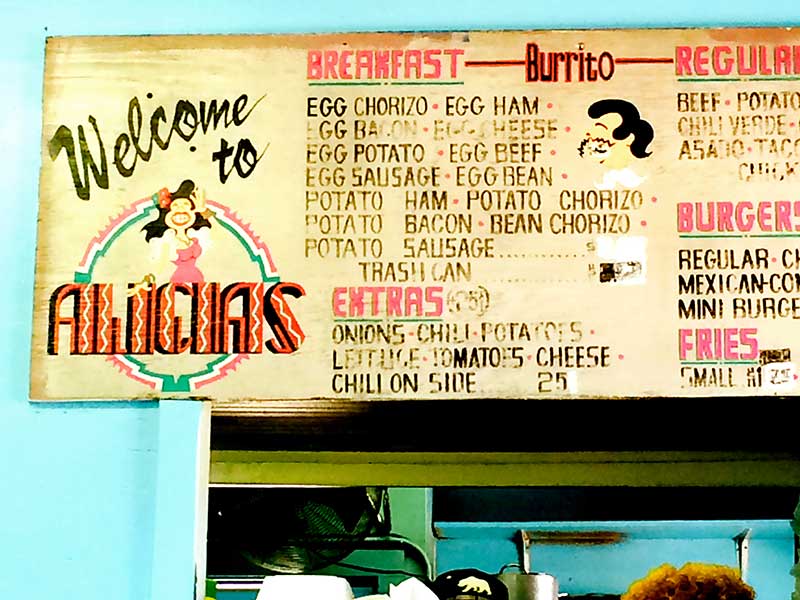 Welcome
to
ALICIAS
BREAKFAST Burrito
EGG CHORIZO · EGG HAM ·
EGG BACON · EGG CHEESE
EGG POTATO · EGG BEEF ·
EGG SAUSAGE · EGG BEAN ·
POTATO HAM · POTATO CHORIZO ·
POTATO BACON · BEAN CHORIZO ·
POTATO SAUSAGE
TRASH CAN
EXTRAS
ONIONS · CHILI · POTATOES ·
LETTUCE · TOMATOES · CHEESE ·
CHILI ON SIDE 25
REGULAR
BEEF · POTATO
CHILI VERDE ·
ASADO · TACO
BURGERS
REGULAR ·
MEXICAN-
MINI BURGE
FRIES
SMALL